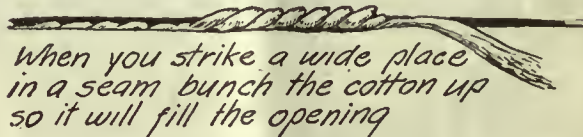 When you strike a wide place
in a seam bunch the cotton up
so it will fill the opening